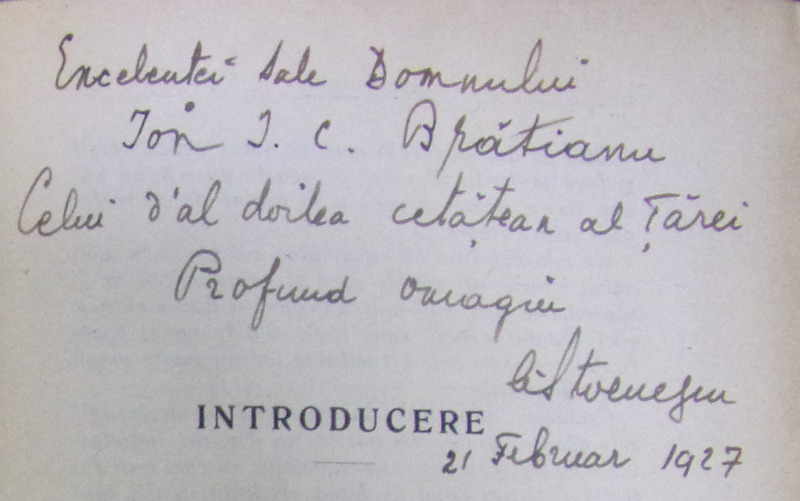 Encelentei Sale Domnului
Ion I. C. Brătianu
Celui d'al doilea cetățean al Țărei
Profund omagiu
INTRODUCERE
21 Februar 1927